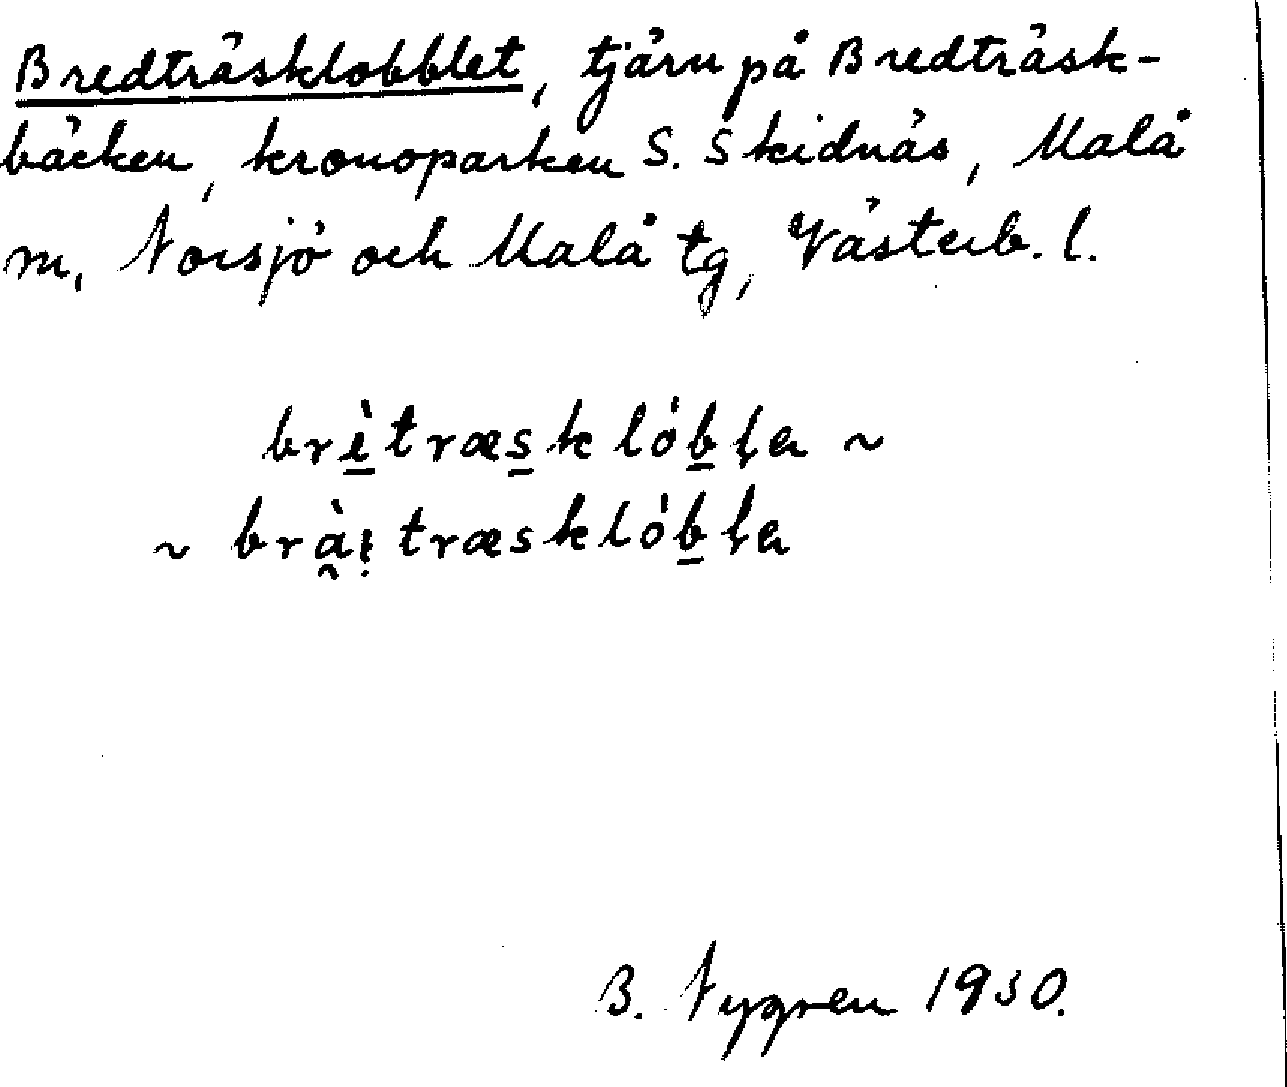 Bredträsklobblet, tjärn på Bredträsk-
bäcken, kronoparken S. Skidnäs, Malå
m, Norsjö och Malå tg, Västerb. l.
brè̲træs̲klób̲ḷa ~
~ brà̰ı̣træsklób̲ḷa
B. Nygren 1930.